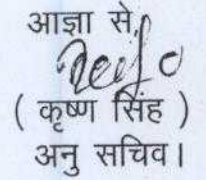 आज्ञा से,
( कृष्ण सिंह )
अनु सचिव।